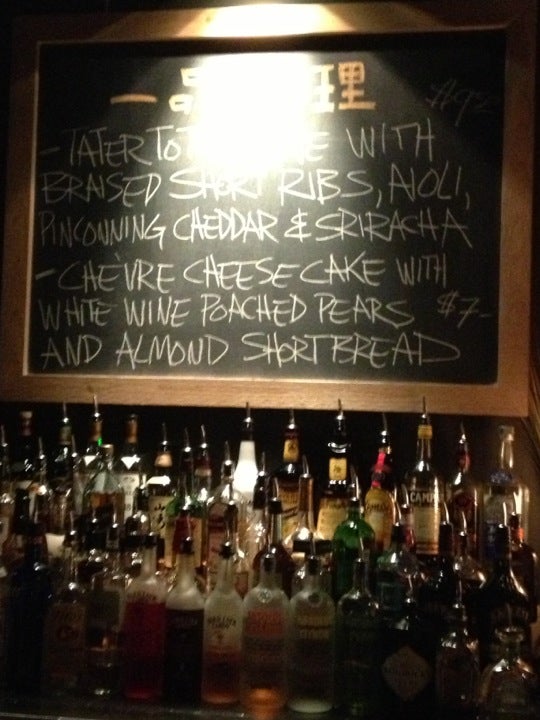 一品 理
- TATER TO WITH
BRAISED SHORT RIBS, AIOLI,
PINCONNING CHEDDAR & SRIRACHA
- CHE'VRE CHEESECAKE WITH
WHITE WINE POACHED PEARS $7-
AND ALMOND SHORTBREAD
CAMP